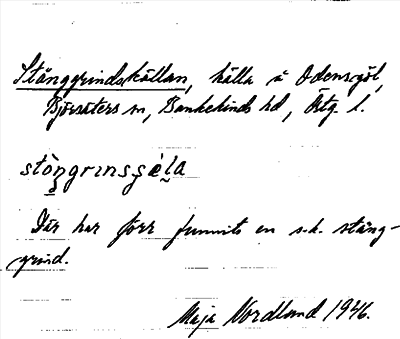 Stånggrindskällan, källa å Odensgöl,
Björsäters sn, Bankekinds hd, Östg. l.
stòngrinsçɛ́la
Där har förr funnits en s.k. stång-
grind.
Maja Nordlund 1946.